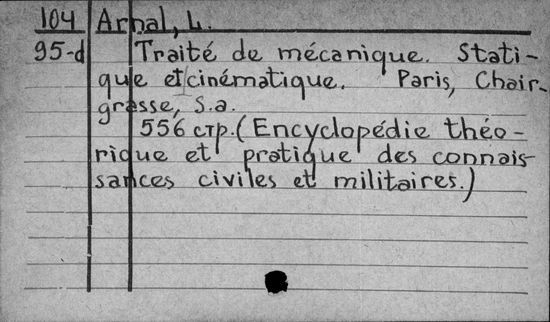 104 Arnal, L.
95-d Traité de mécanique. Stati-
que et cinématique. Paris, Chair-
grasse, s.a.
556 стр. (Encyclopédie théo-
rique et pratique des connais-
sances civiles et militaires.)